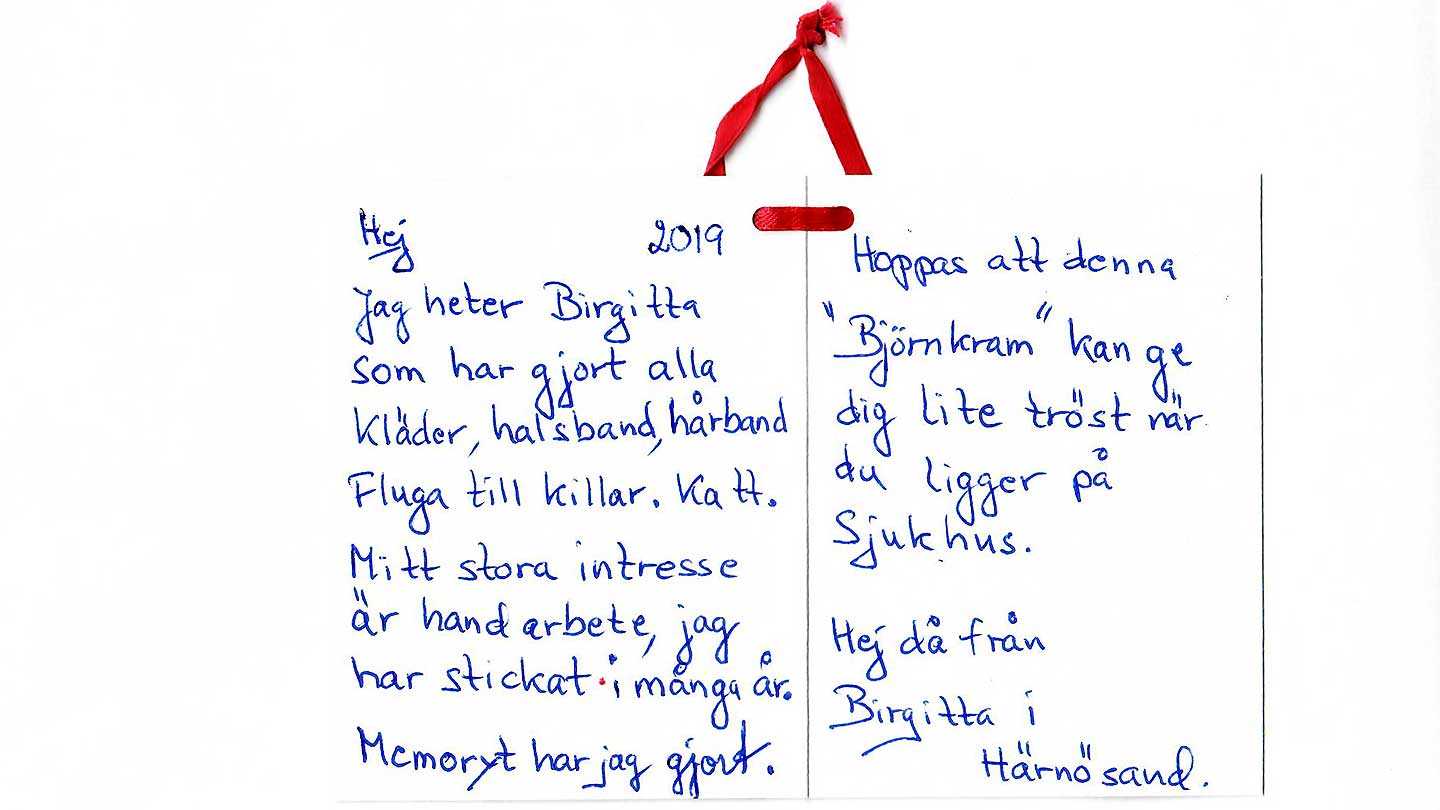 Hej 2019
Jag heter Birgitta
som har gjort alla
Kläder, halsband, hårband
Fluga till killar. Katt.
Mitt stora intresse
är handarbete, jag
har stickat i många år.
Memoryt har jag gjort.
Hoppas att denna
"Björnkram" kan ge
dig lite tröst när
du ligger på
Sjukhus.
Hej då från
Birgitta i
Härnösand.